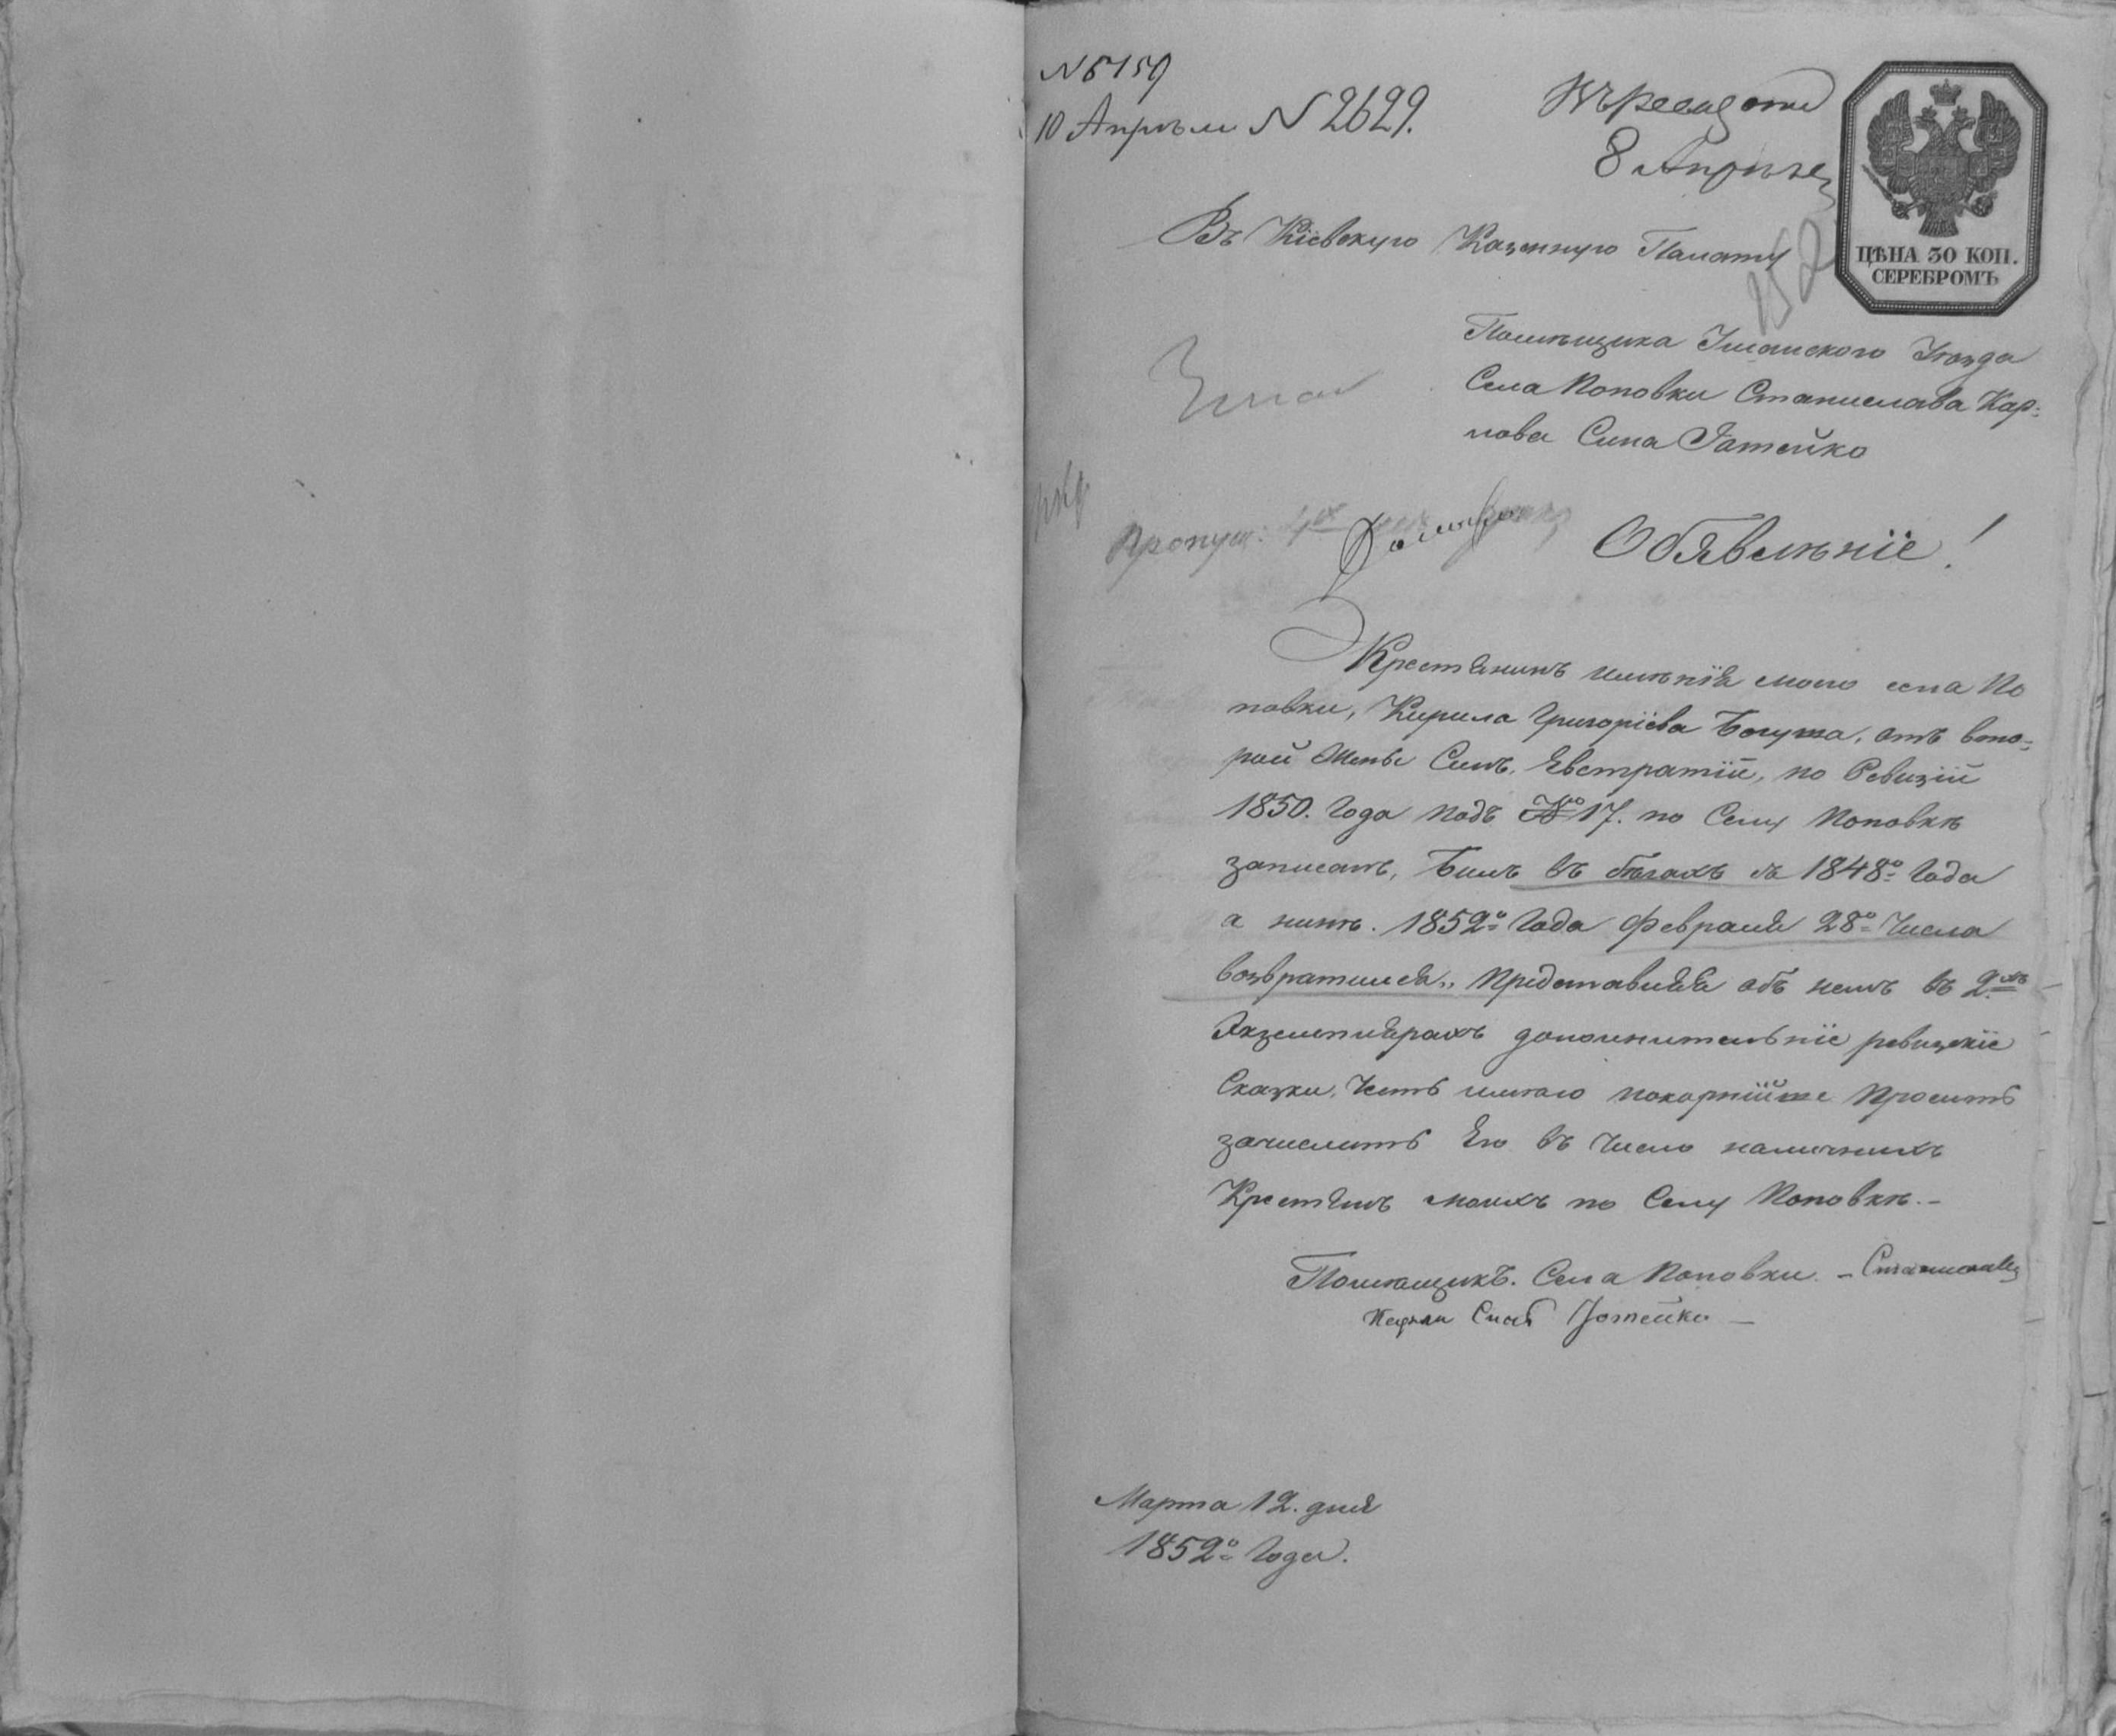 N 5159
10 Апрѣля N 2629.
8 Апрѣля
ЦѢНА 30 КОП.
СЕРЕБРОМЪ
152
Въ Кіевскую Казенную Палату
Помѣщика Уманского Уѣзда
Села Поповки Станислава Кар-
лова Сина Ѓотейко
Пропущ:
Обявлѣніе!
Крестянинъ имѣнія моего села По
повки, Кирила Григоріева Богуша, отъ вто-
рой Жены Синъ, Евстратій, по Ревизій
1850. Года подъ № 17. по Селу Поповкѣ
записанъ, Билъ въ бѣгахъ съ 1848º Года
а нинѣ. 1852º Года февраля 28º Числа
возвратился„ Представляя объ немъ въ 2хъ
Экземплярахъ дополнительніе ревизскіе
Сказки, Честь имѣю покорнійше Просить
зачислить Его въ Число наличнихъ
Крестянъ моихъ по Селу Поповкѣ.–
Помѣщикъ. Села Поповки – Станиславъ
Марта 12. дня
1852º Года.